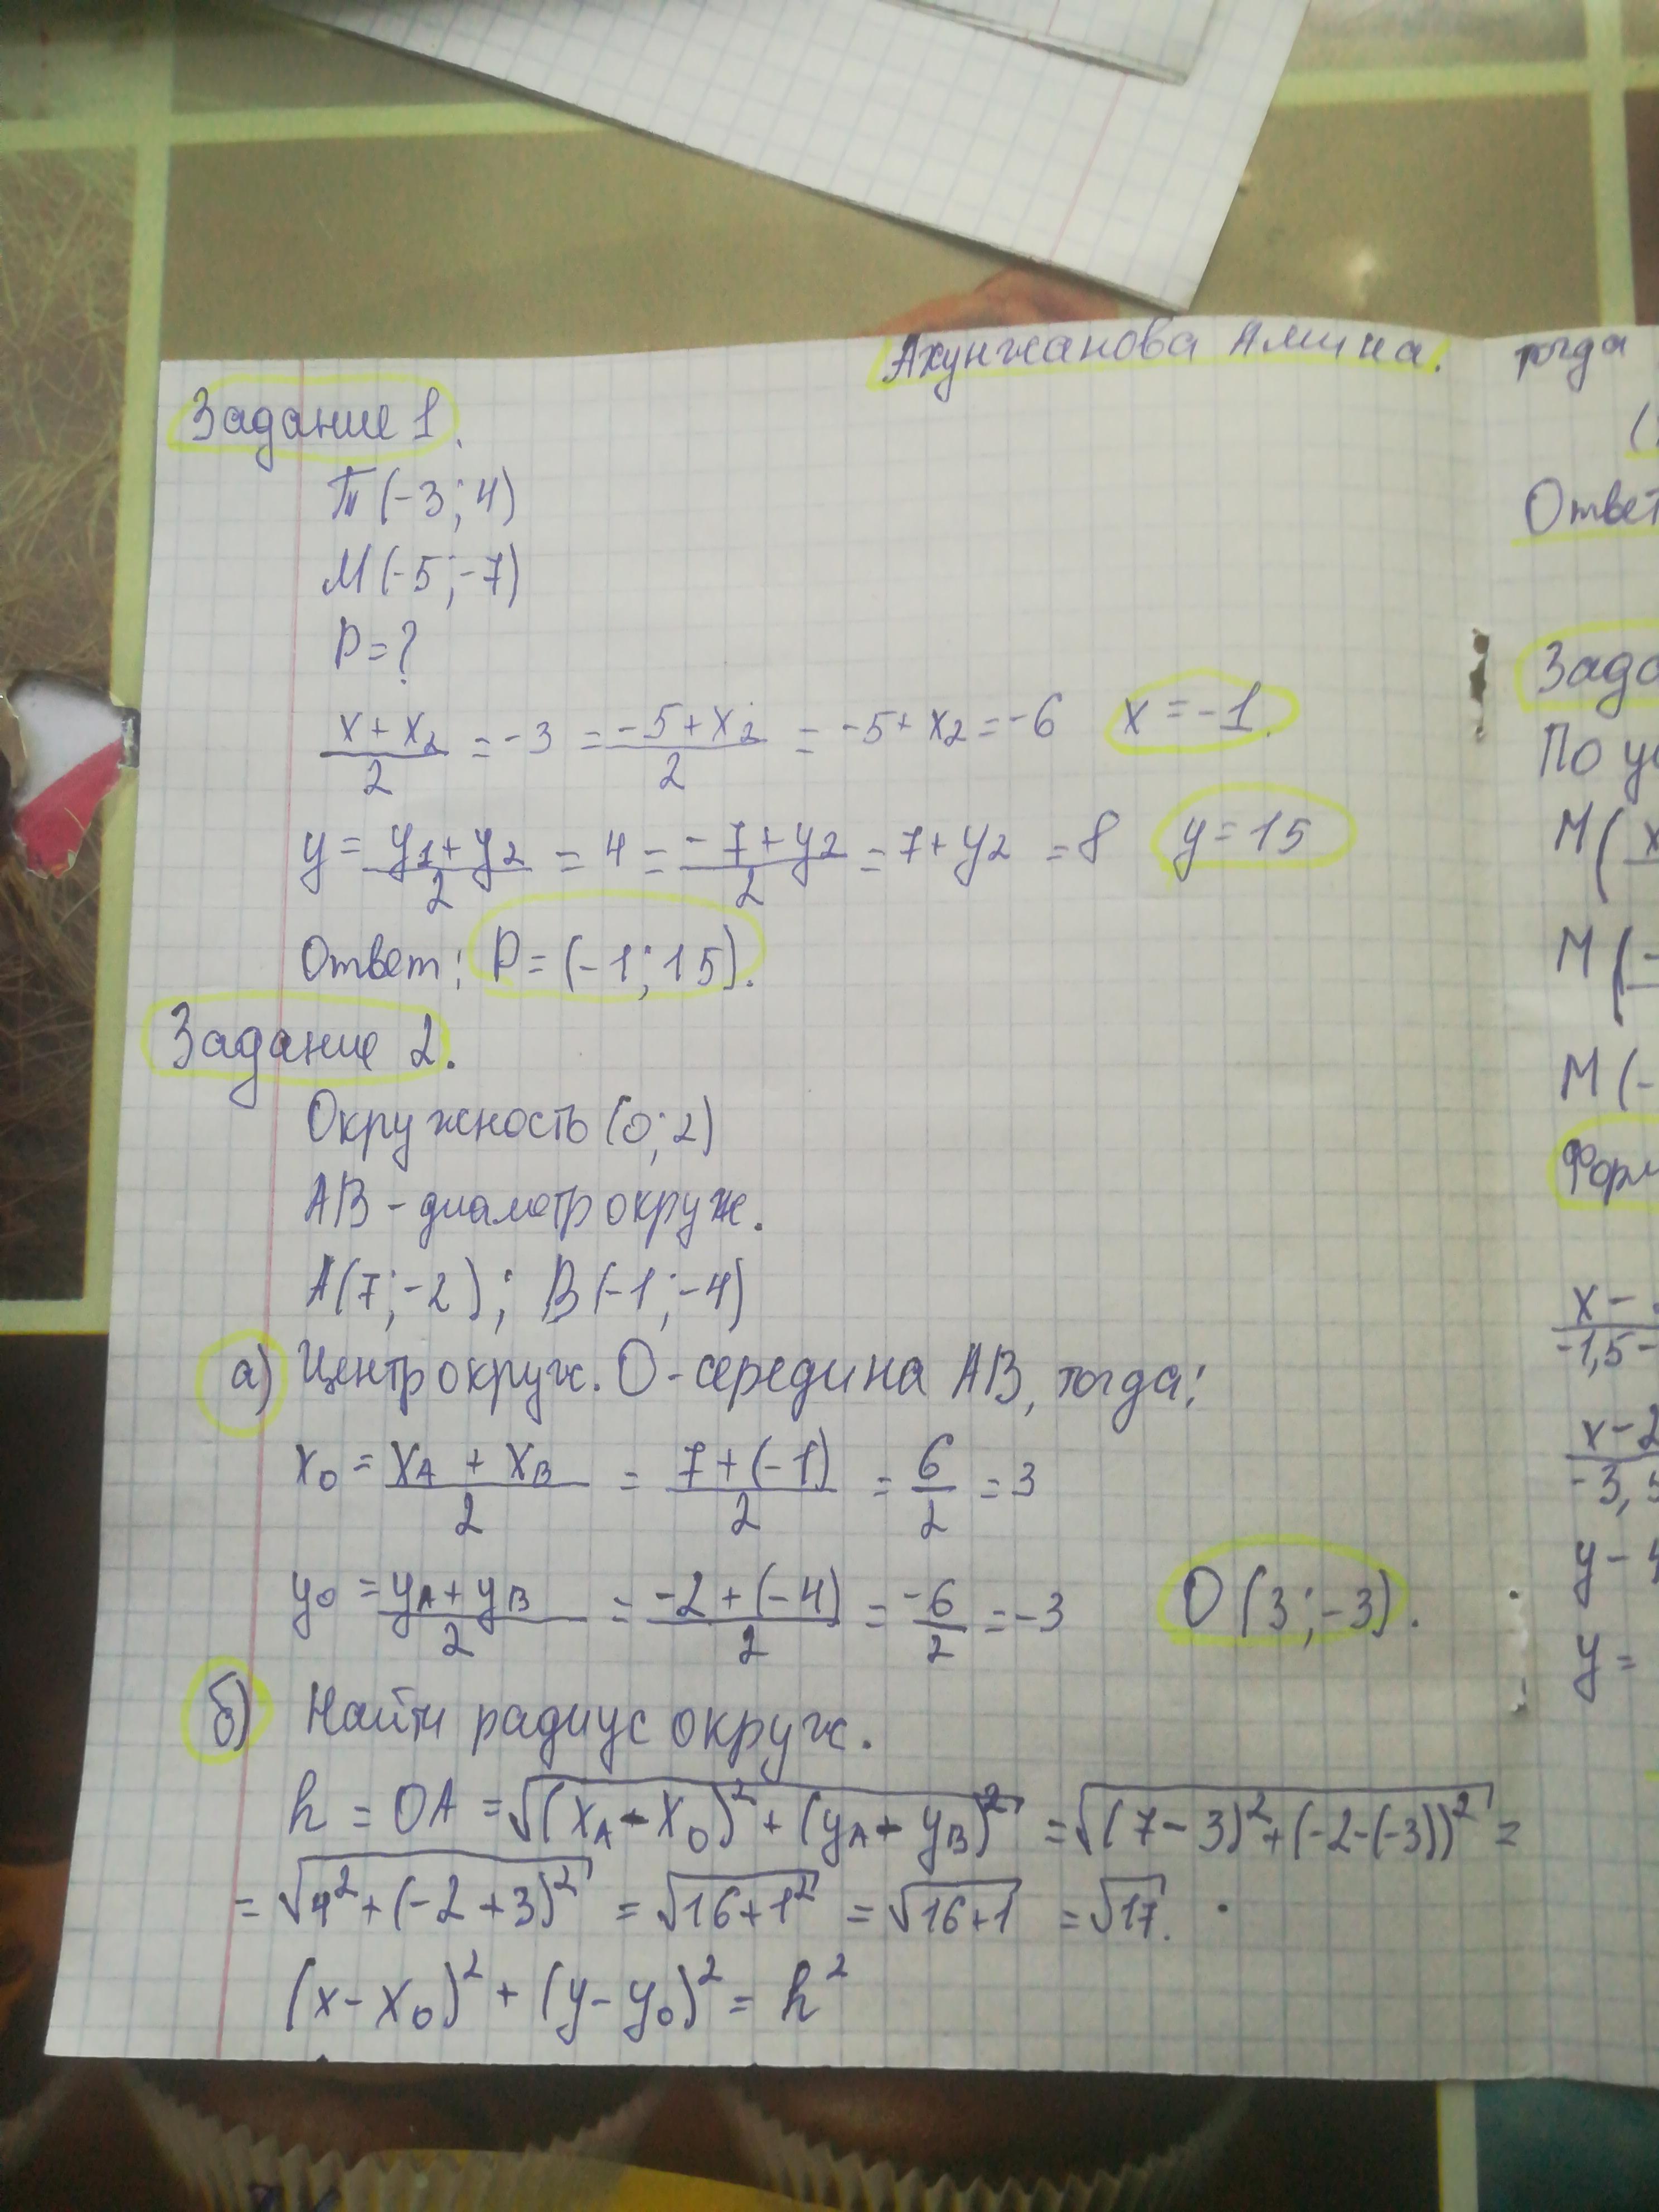 Ахунжанова Амина.
Задание 1.
Т(-3; 4)
М(-5; -7)
P = ?
x + x₂ / 2 = -3 = -5 + x₂ / 2 = -5 + x₂ = -6 x = -1.
y = y₁ + y₂ / 2 = 4 = -7 + y₂ / 2 = 7 + y₂ = 8 y = 15
Ответ: P = (-1; 15).
Задание 2.
Окружность (0; 2)
АВ - диаметр окруж.
А(7; -2); В(-1; -4)
а) Центр окруж. О - середина АВ, тогда:
x₀ = xA + xB / 2 = 7 + (-1) / 2 = 6 / 2 = 3
y₀ = yA + yB / 2 = -2 + (-4) / 2 = -6 / 2 = -3 О (3; -3).
б) Найти радиус окруж.
R = OA = √(xA - x₀)² + (yA - yB)² = √(7 - 3)² + (-2 - (-3))² =
= √4² + (-2 + 3)² = √16 + 1² = √16 + 1 = √17.
(x - x₀)² + (y - y₀)² = R²
тогда
(
Ответ
Зада
По ус
М( x
М( -
М( -
Форм
x -
-1,5 -
x - 2
-3,5
y - 4
y =